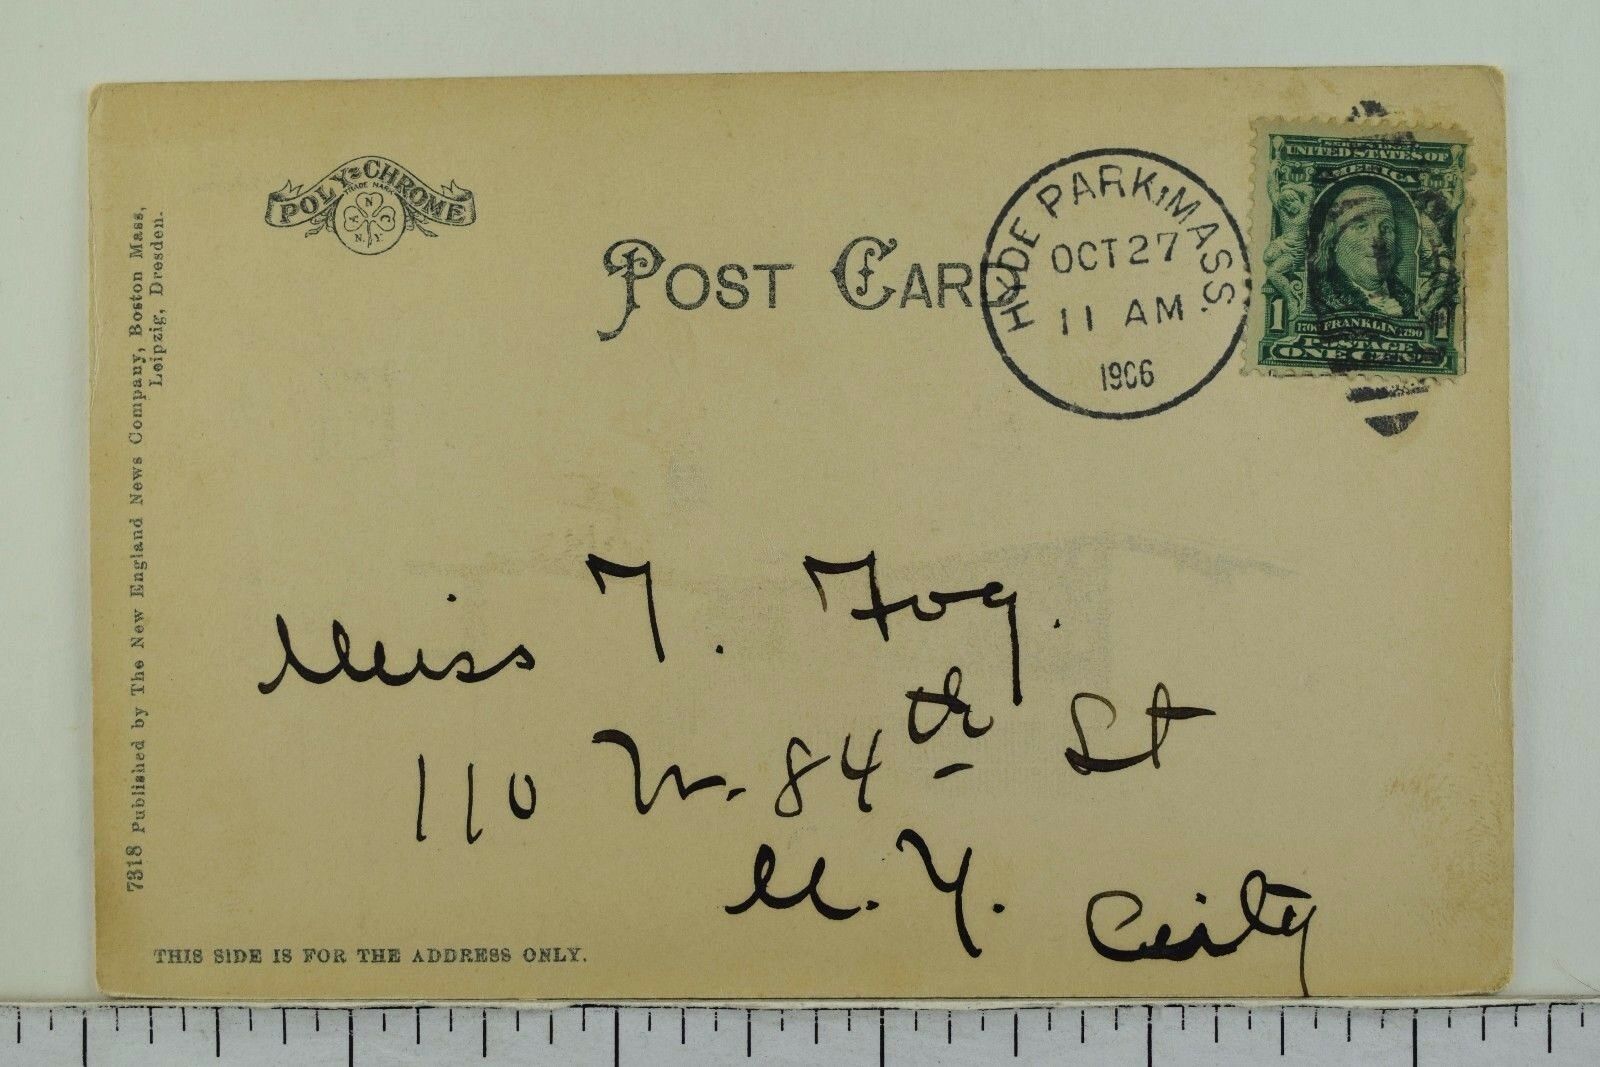 POLY-CHROME
TRADE MARK
N
A N C
N.Y.
POST CARD
HYDE PARK, MASS.
OCT 27
11 AM
1906
UNITED STATES OF
AMERICA
1 1
1706 FRANKLIN 1790
POSTAGE
ONE CENT
7318 Published by The New England News Company, Boston Mass,
Leipzig, Dresden.
Miss T. Foy.
110 W. 84th St
N. Y. City
THIS SIDE IS FOR THE ADDRESS ONLY.